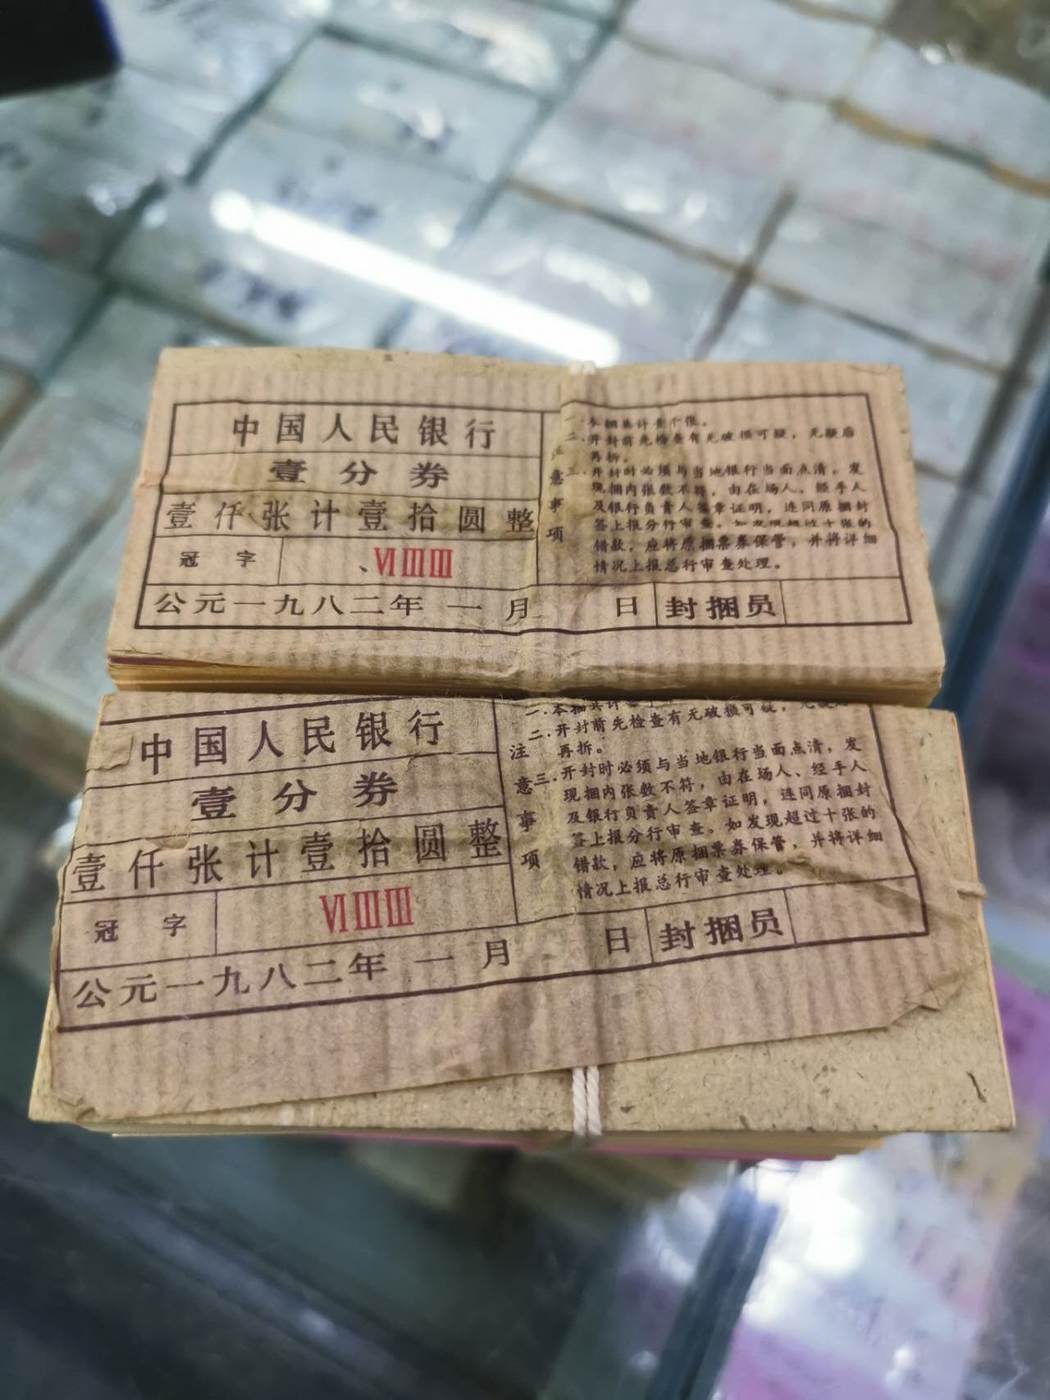 中国人民银行
壹分券
壹仟张计壹拾圆整
冠字
ⅥⅢⅢ
公元一九八二年一月 日 封捆员
注意事项
一.本捆共计壹千张。
二.开封前先检查有无破损可疑，无疑后
再拆。
三.开封时必须与当地银行当面点清，发
现捆内张数不符，由在场人、经手人
及银行负责人签章证明，连同原捆封
签上报分行审查。如发现超过十张的
错款，应将原捆票券保管，并将详细
情况上报总行审查处理。
中国人民银行
壹分券
壹仟张计壹拾圆整
冠字
ⅥⅢⅢ
公元一九八二年一月 日 封捆员
注意事项
一.本捆共计
二.开封前先检查有无破损可疑，无疑
再拆。
三.开封时必须与当地银行当面点清，发
现捆内张数不符，由在场人、经手人
及银行负责人签章证明，连同原捆封
签上报分行审查。如发现超过十张的
错款，应将原捆票券保管，并将详细
情况上报总行审查处理。